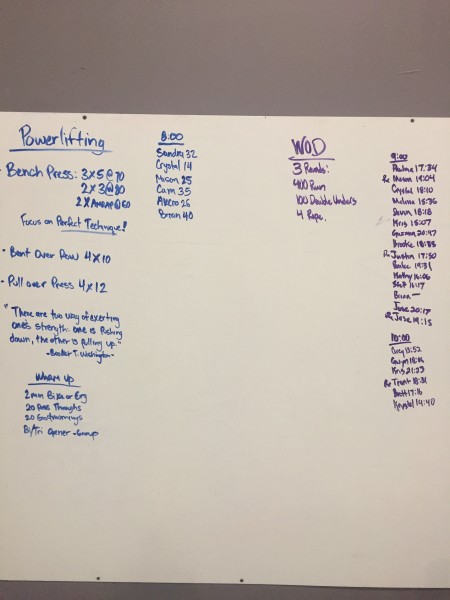 Powerlifting
- Bench Press: 3x5@70
2x3@80
2xAmrap@60
Focus on Perfect Technique!
- Bent Over Row 4x10
- Pull over Press 4x12
"There are two way of exerting
one's strength: one is pushing
down, the other is pulling up."
-Booker T. Washington-
Warm up
2min Bike or Erg
20 Pass Throughs
20 Goodmornings
Bi/Tri Opener -Group
8:00
Sandra 32
Crystal 14
Mason 25
Cam 35
26
Brian 40
WOD
3 Rounds:
400 Run
100 Double Unders
4 Rope
9:00
17:34
Rx Mason 18:04
Crystal 18:10
Melissa 15:36
18:18
Kris 15:07
20:47
Brooke 18:58
Rx Justin 17:50
19:31
16:06
16:17
Brian —
Jose 20:17
Rx Jose 19:15
10:00
13:52
Kris 21:23
Rx Trent 18:31
Brett 17:16
Krystal 14:40